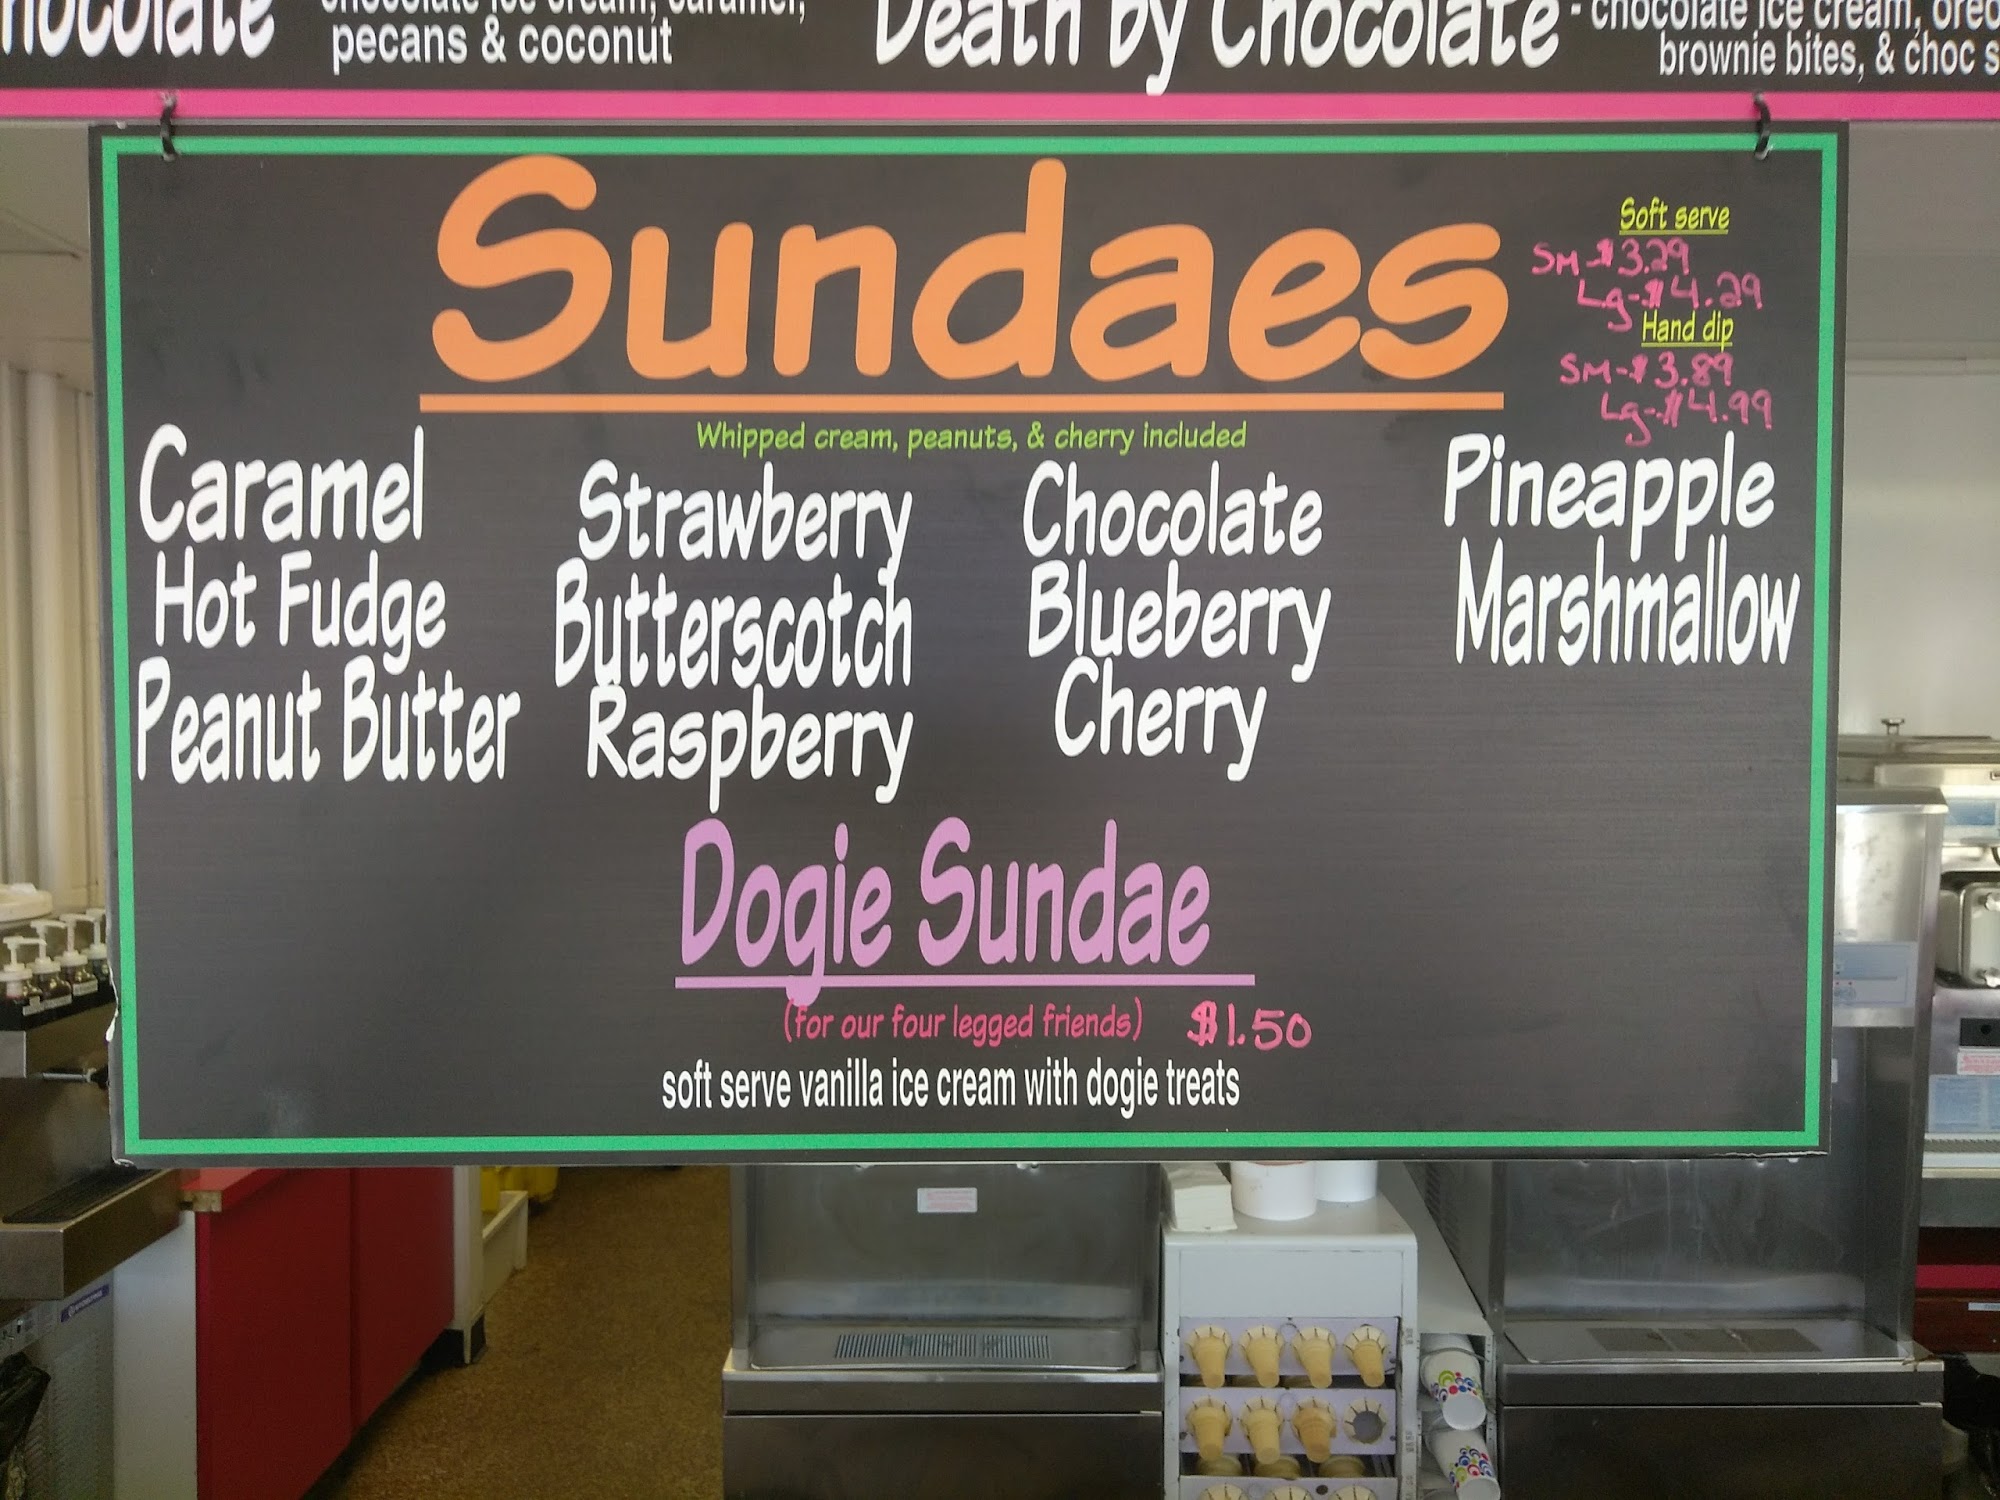 chocolate ice cream, caramel,
pecans & coconut
Death by Chocolate - chocolate ice cream, oreo
brownie bites, & choc s
Sundaes
Soft serve
SM-$3.29
Lg-$4.29
Hand dip
SM-$3.89
Lg-$4.99
Whipped cream, peanuts, & cherry included
Caramel
Hot Fudge
Peanut Butter
Strawberry
Butterscotch
Raspberry
Chocolate
Blueberry
Cherry
Pineapple
Marshmallow
Dogie Sundae
(for our four legged friends) $1.50
soft serve vanilla ice cream with dogie treats